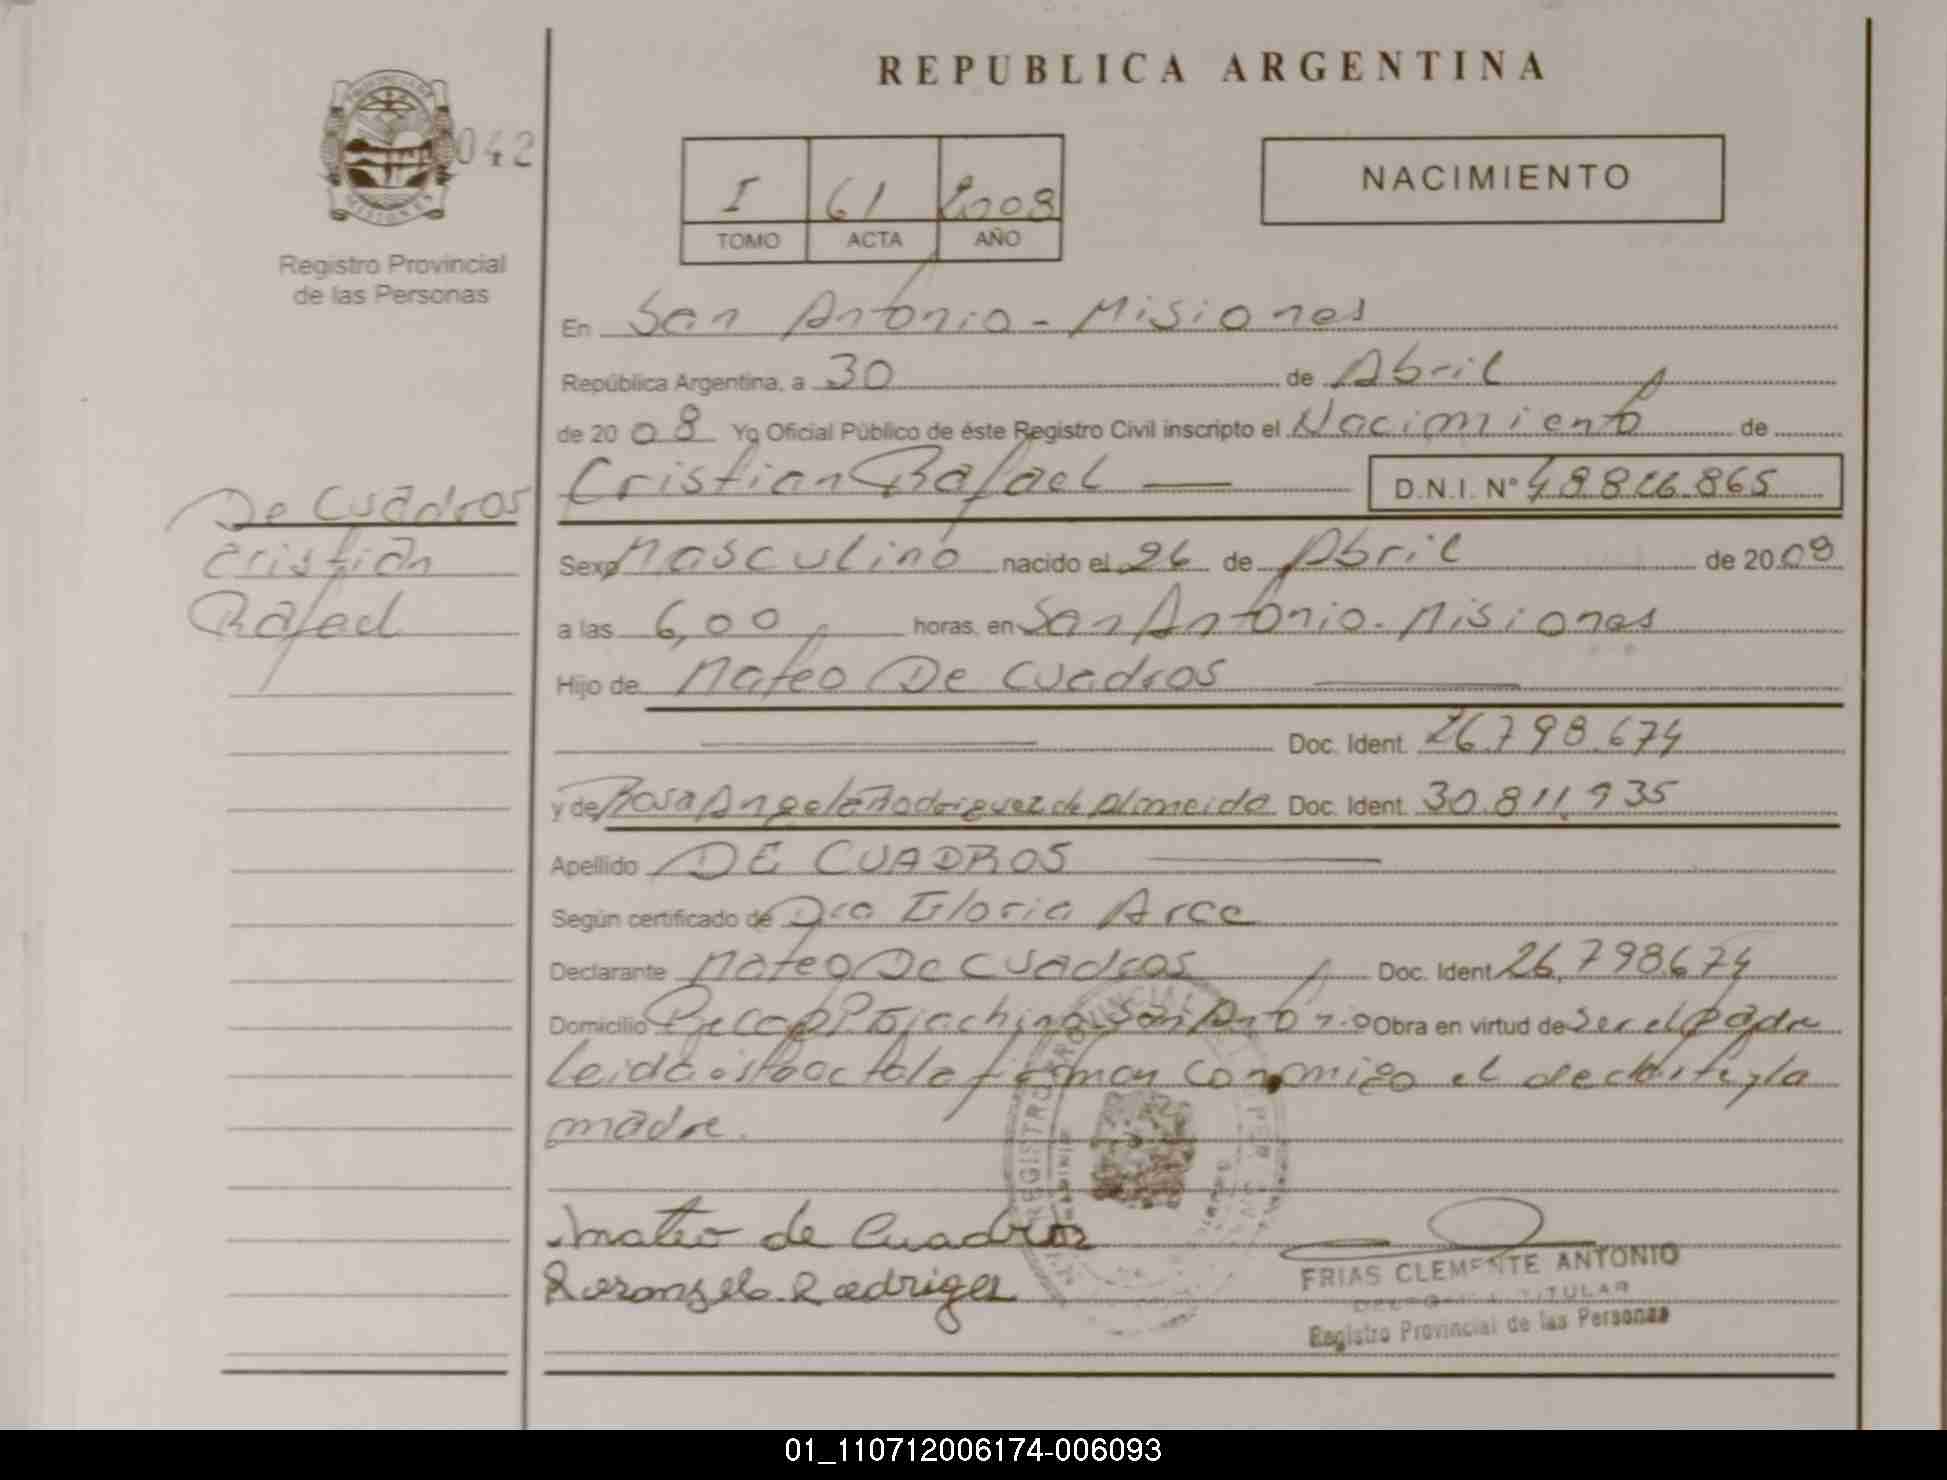 REPUBLICA ARGENTINA
042
MISIONES
Registro Provincial
de las Personas
I 61 2008
TOMO ACTA AÑO
NACIMIENTO
En San Antonio - Misiones
República Argentina, a 30 de Abril
de 20 08 Yo Oficial Público de éste Registro Civil inscripto el Nacimiento de
Cristian Rafael D.N.I. Nº 48.816.865
De Cuadros
Cristian
Rafael
Sexo Masculino nacido el 26 de Abril de 20 08
a las 6,00 horas, en San Antonio - Misiones
Hijo de Mateo De Cuadros
Doc. Ident. 26.798.674
y de Rosa Angela Rodriguez de Almeida Doc. Ident. 30.811.935
Apellido DE CUADROS
Según certificado de Dra Gloria Arce
Declarante Mateo De Cuadros Doc. Ident 26.798.674
Domicilio San Antonio Obra en virtud de Ser el padre
Leida esta acta la firman conmigo el declarte y la
madre.
mateo de Cuadros
Rosangela Rodriguez
FRIAS CLEMENTE ANTONIO
DELEGADO TITULAR
Registro Provincial de las Personas
01_110712006174-006093